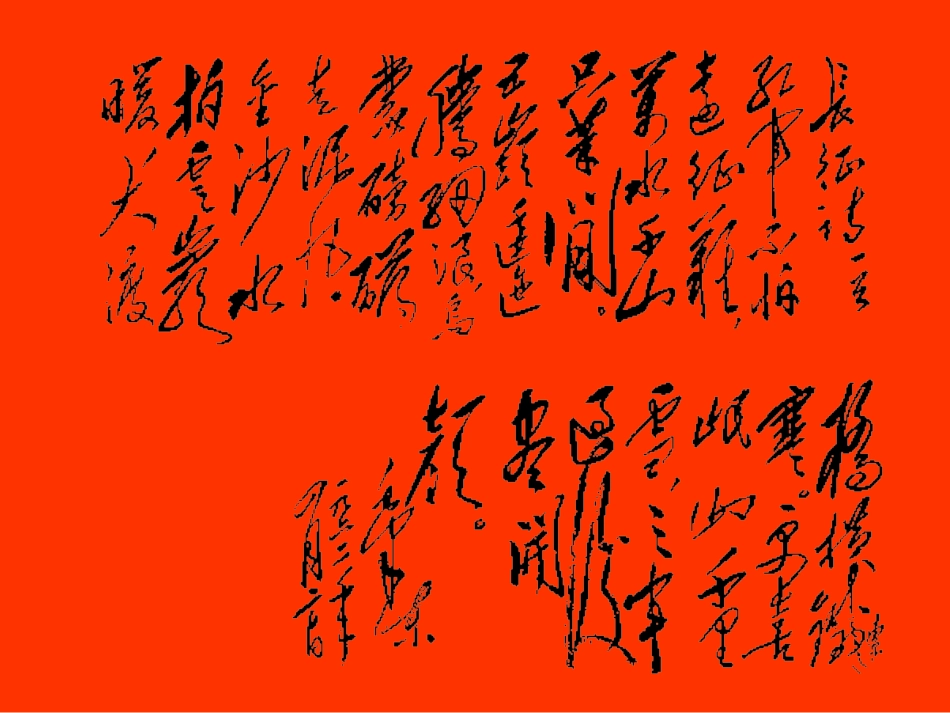 長征詩一首
紅軍不怕
遠征難，
萬水千山
只等閒。
五嶺逶迤
騰細浪烏
蒙磅礴
走泥丸。
金沙水
拍雲崖
暖大渡
橋橫鐵索
寒。更喜
岷山千里
雪，三軍
過後
盡開
顏。
毛澤東